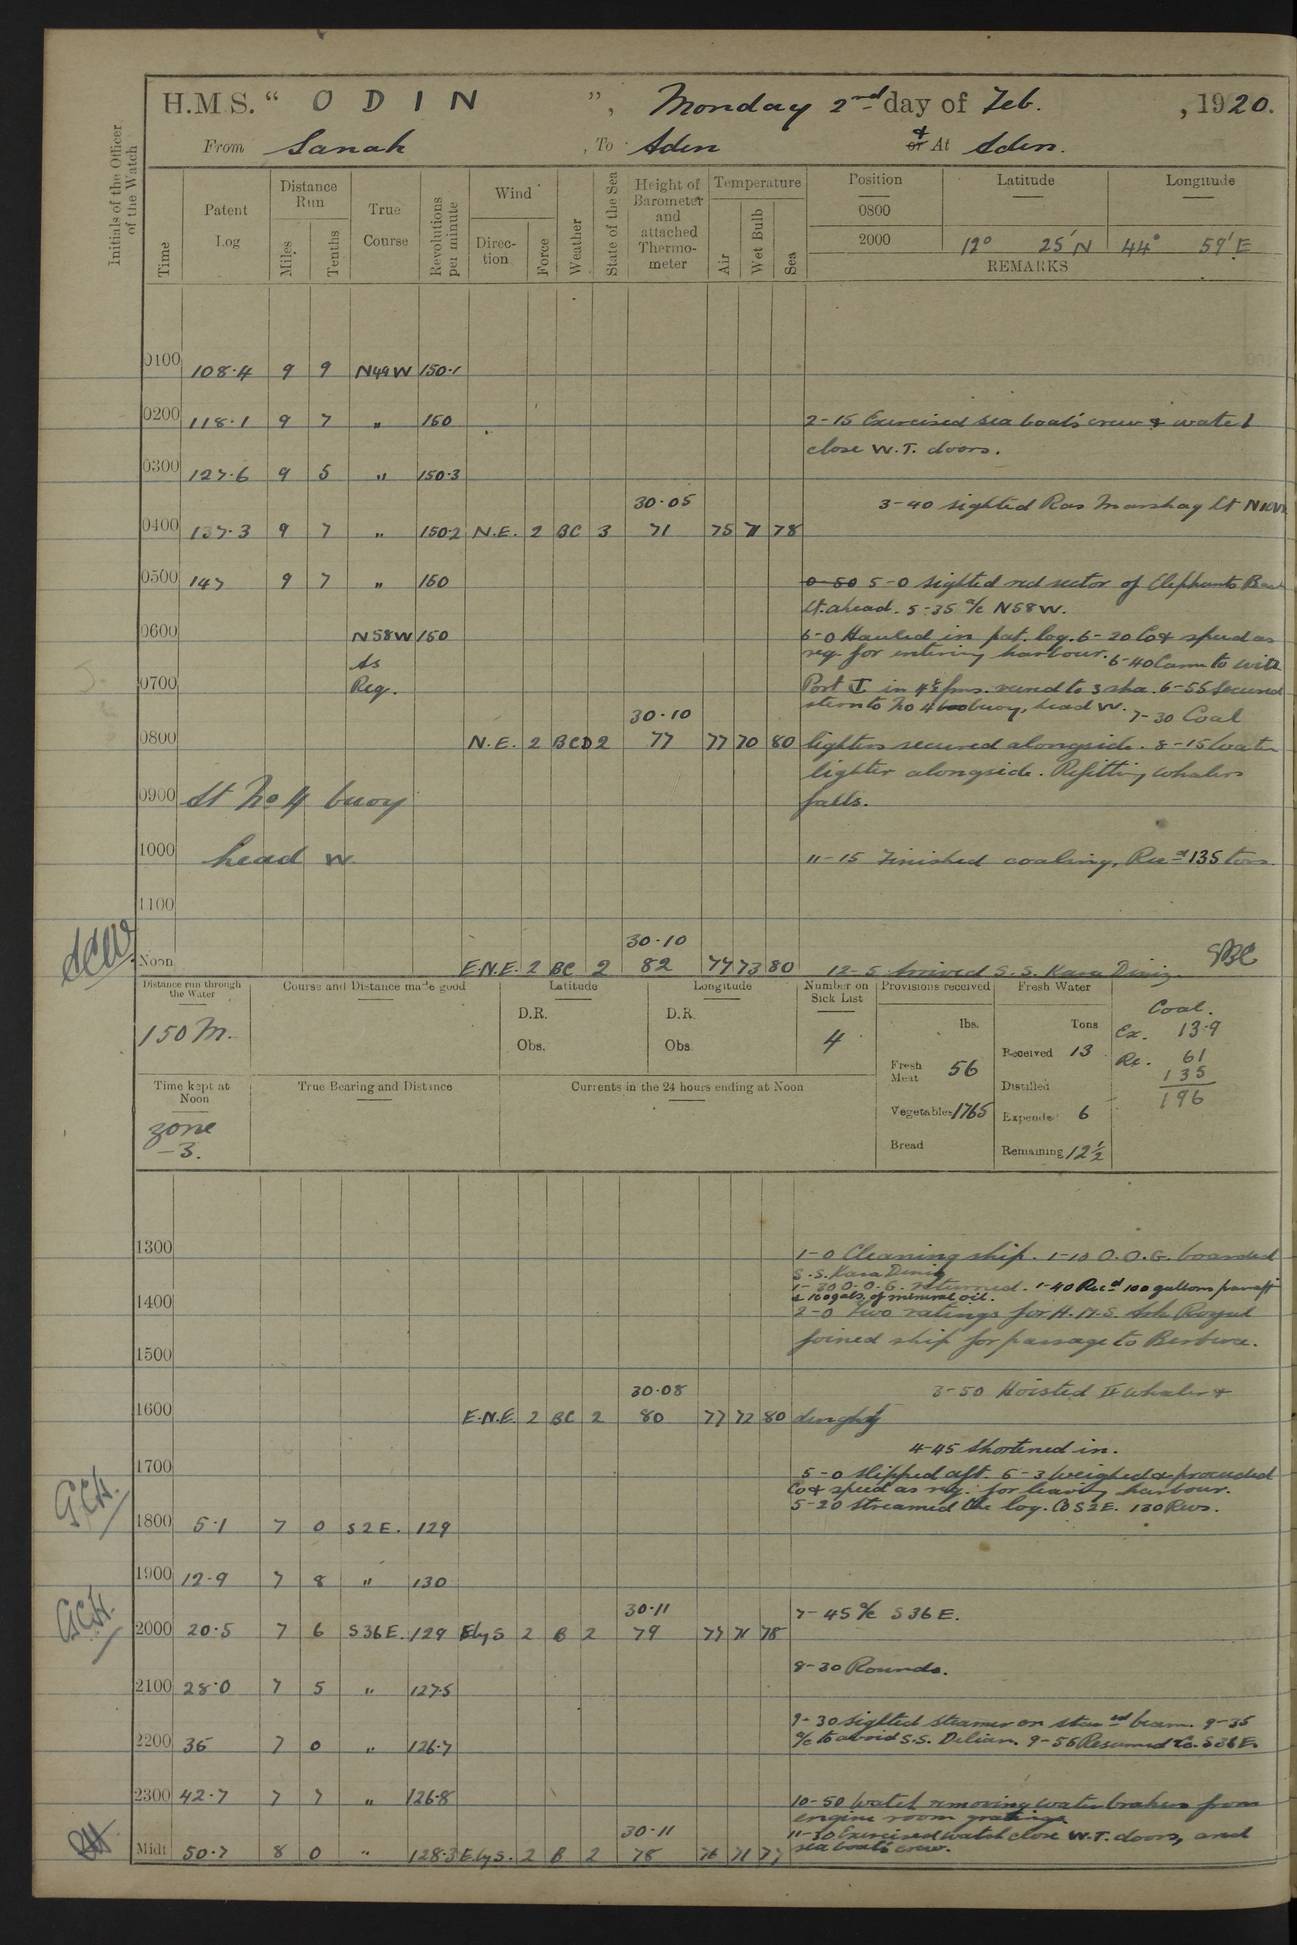 H.M.S. “ ODIN ”, Monday 2nd day of Feb. , 1920.
From Sanah , To Aden & or At Aden.
Initials of the Officer of the Watch
Time Patent Log Distance Run Miles Tenths True Course Revolutions per minute Wind Direction Force Weather State of the Sea Height of Barometer and attached Thermometer Temperature Air Wet Bulb Sea Position Latitude Longitude
0800
2000 12° 25' N 44° 59' E
REMARKS
0100 108.4 9 9 N49W 150.1
0200 118.1 9 7 " 150 2-15 Exercised sea boats crew & watch
close W.T. doors.
0300 127.6 9 5 " 150.3
30.05 3-40 sighted Ras Marshag Lt
0400 137.3 9 7 " 150.2 N.E. 2 BC 3 71 75 71 78
0500 147 9 7 " 150 0-50 5-0 sighted red sector of Elephants Back
Lt. ahead. 5-35 a/c N58W.
0600 N58W 150 6-0 Hauled in pat. log. 6-20 Co & speed as
As req. for entering harbour. 6-40 Came to with
0700 Req. Port in 4½ fms. veered to 3 sha. 6-55 Secured
stern to No 4 buoy, head W. 7-30 Coal
30.10
0800 N.E. 2 BCD 2 77 77 70 80 lighters secured alongside. 8-15 Water
lighter alongside. Refitting whalers
0900 At No 4 buoy falls.
1000 head W 11-15 Finished coaling, Recd 135 tons.
1100
30.10
SCW Noon E.N.E. 2 BC 2 82 77 73 80 12-5 Arrived S.S. Kara Deniz.
Distance run through the Water Course and Distance made good Latitude Longitude Number on Sick List Provisions received Fresh Water Coal.
150 M. D.R. D.R. 4 lbs. Tons Ex. 13.9
Obs. Obs. Fresh Meat 56 Received 13 Re. 61
Time kept at Noon True Bearing and Distance Currents in the 24 hours ending at Noon Distilled 135
zone -3. Vegetables 1765 Expended 6 196
Bread Remaining 12½
1300 1-0 Cleaning ship. 1-10 O.O.G. boarded
S.S. Kara Deniz
1-30 O.O.G. returned. 1-40 Recd 100 gallons paraff
1400 & 100 gals of mineral oil.
2-0 Two ratings for H.M.S. Ark Royal
1500 joined ship for passage to Berbera.
30.08 3-50 Hoisted whaler &
1600 E.N.E. 2 BC 2 80 77 72 80 dinghy
4-45 Shortened in.
1700 5-0 slipped aft. 5-3 weighed & proceeded
Co & speed as req. for leaving harbour.
5-20 streamed the log. Co S2E. 130 Revs.
G.C.H. 1800 5.1 7 0 S2E. 129
1900 12.9 7 8 " 130
30.11 7-45 a/c S36E.
G.C.H. 2000 20.5 7 6 S36E. 129 E by S 2 B 2 79 77 71 78
8-30 Rounds.
2100 28.0 7 5 " 127.5
9-30 sighted steamer on starbd beam. 9-35
2200 35 7 0 " 126.7 a/c to avoid S.S. Delian. 9-55 Resumed Co. S36E.
2300 42.7 7 7 " 126.8 10-50 Watch removing water brakers from
engine room gratings
30.11 11-30 Exercised watch close W.T. doors, and
Midt 50.7 8 0 " 128.3 E by S. 2 B 2 78 76 71 77 sea boats crew.